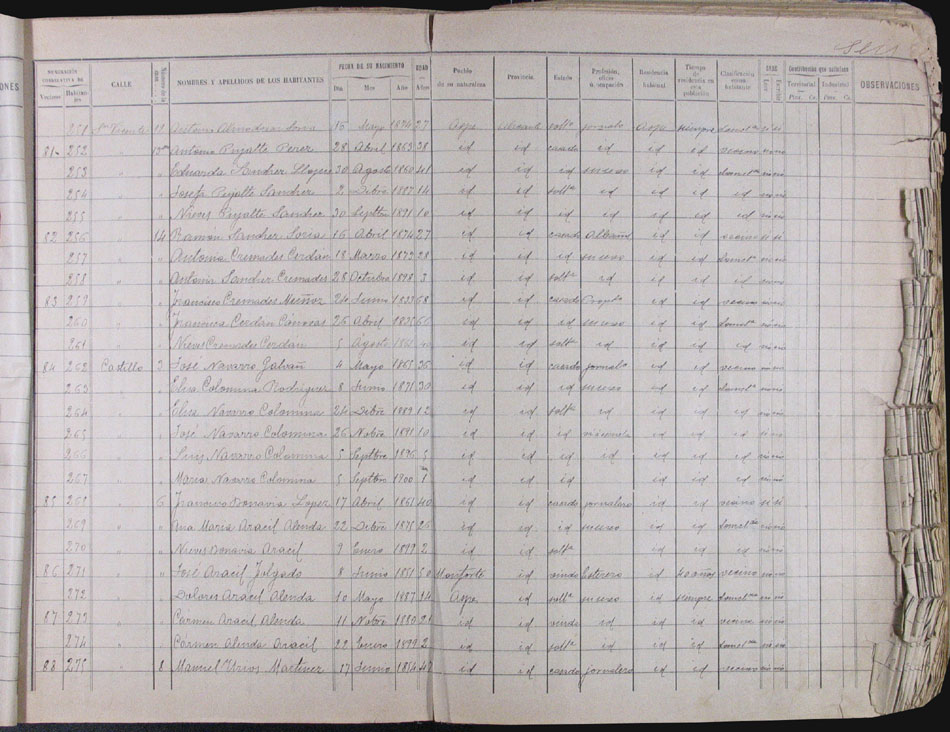 NUMERACIÓN CORRELATIVA DE Vecinos Habitantes CALLE NOMBRES Y APELLIDOS DE LOS HABITANTES FECHA DE SU NACIMIENTO Día Mes Año EDAD Años Pueblo de su naturaleza Provincia Estado Profesión, oficio u ocupación Residencia habitual Tiempo de residencia en esta población Clasificación como habitante SABE Leer Escribir Contribución que satisface Territorial Ptas. Cs. Industrial Ptas. Cs. OBSERVACIONES
251 Sn Vicente 11 Antonio 15 Mayo 1874 27 Aspe Alicante solto jornalo Aspe siempre si si
81 252 Antonio Pujalte Perez 28 Abril 1863 38 id id casado id id id vecino no no
253 " Eduarda Sanchez 30 Agosto 1860 41 id id id su sexo id id no no
254 " Josefa Pujalte Sanchez 2 Dcbre 1887 14 id id solta id id id id no no
255 " Nieves Pujalte Sanchez 30 Septbre 1891 10 id id id id id id id no no
82 256 " 14 Ramon Sanchez Soria 16 Abril 1874 27 id id casado Albañil id id vecino si si
257 " Antonia Cremades Cerdán 18 Marzo 1873 28 id id id su sexo id id no no
258 " Antonia Sanchez Cremades 28 Octubre 1898 3 id id solta id id id id no no
83 259 " Francisco Cremades Muñoz 24 Junio 1833 68 id id casado id id vecino no no
260 " Francisca Cerdán Cánovas 26 Abril 1835 66 id id id su sexo id id no no
261 " Nieves Cremades Cerdán 5 Agosto id id solta id id id id no no
84 262 Castillo 3 José Navarro Galvañ 4 Mayo 1865 36 id id casado jornalo id id vecino no no
263 " Elisa Colomina Rodriguez 8 Junio 1871 30 id id id su sexo id id no no
264 " Elisa Navarro Colomina 24 Dcbre 1889 12 id id solta id id id id no no
265 " José Navarro Colomina 26 Nobre 1891 10 id id id id id id
266 " Luis Navarro Colomina 5 Septbre 1896 5 id id id id id id id no no
267 " Maria Navarro Colomina 5 Septbre 1900 1 id id id id id id id no no
85 268 " 6 Francisco Bonavia Lopez 17 Abril 1861 40 id id casado jornalero id id vecino si si
269 " Ana Maria Aracil Alenda 22 Dcbre 1875 26 id id id su sexo id id no no
270 " Nieves Bonavia Aracil 9 Enero 1899 2 id id solta id id id id no no
86 271 " José Aracil Folgado 8 Junio 1851 50 Monforte id viudo Esterero id 40 años vecino no no
272 " Dolores Aracil Alenda 10 Mayo 1887 14 Aspe id solta su sexo id siempre no no
87 273 " Carmen Aracil Alenda 11 Nobre 1880 21 id id viuda id id id vecino no no
274 " Carmen Alenda Aracil 22 Enero 1899 2 id id solta id id id no no
88 275 " 8 Manuel Urios Martinez 17 Junio 1854 47 id id casado jornalero id id vecino no no